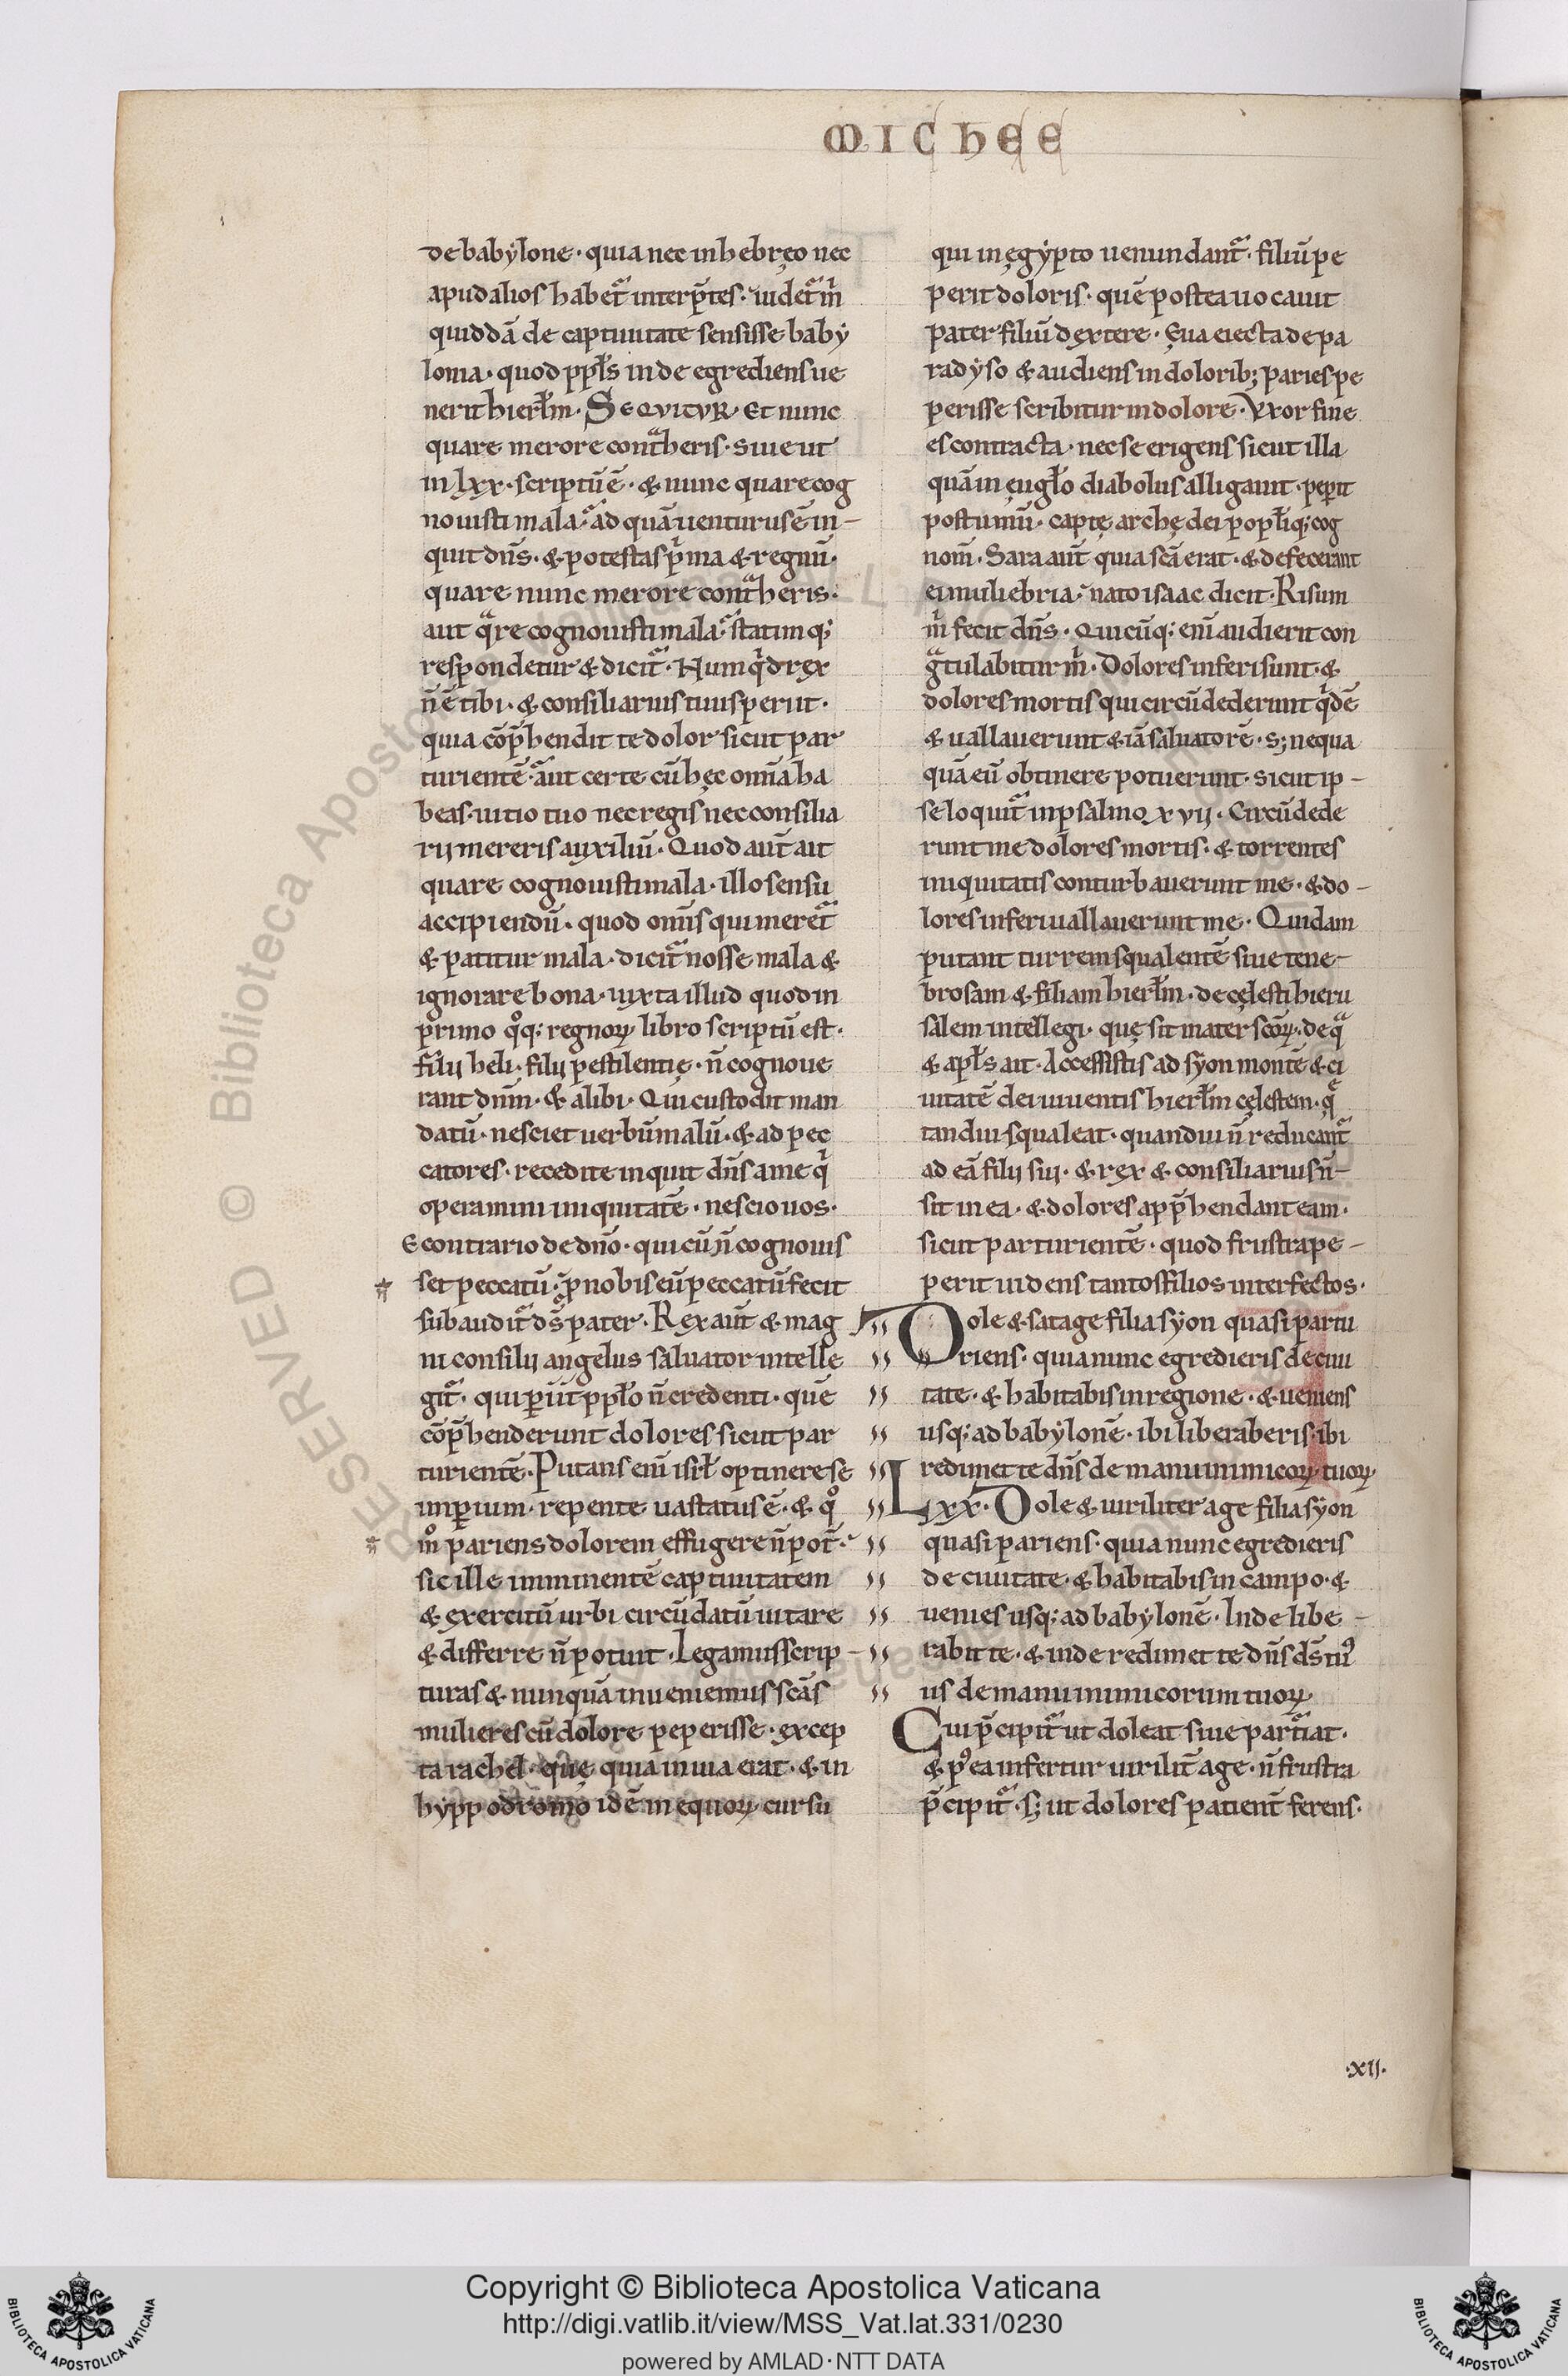 MICHEE
de babẏlone · quia nec in hebręo nec
apud alios habet᷑ interp̄tes · uidet᷑ m̄
quiddā de captiuitate sensisse babẏ
lonia · quod pp̄ls inde egrediens ue
nerit hierl̄m · SEQVITVR · Et nunc
quare merore cont̄heris · siue ut
in lxx · scriptū ē · & nunc quare cog
nouisti mala · ad quā uenturus ē in-
quit dn̄s · & potestas p̄ma & regnū ·
quare nunc merore cont̄heris ·
aut q̄re cognouisti mala · statimq;
respondetur & dicit᷑ · Numq̄d rex
n̄ ē tibi · & consiliarius tuus periit ·
quia cōp̄hendit te dolor sicut par
turientē · aut certe cū hęc om̄ia ha
beas · uitio tuo nec regis nec consilia
rij mereris auxiliū · Quod aut̄ ait
quare cognouisti mala · illo sensu
accipiendū · quod om̄is qui meret᷑
& patitur mala · dicit᷑ nosse mala &
ignorare bona · iuxta illud quod in
primo qͦq; regnoꝝ libro scriptū est ·
filij heli · filij pestilentię · n̄ cognoue
rant dn̄m · & alibi · Qui custodit man
datū · nesciet uerbū malū · & ad pec
catores · recedite inquit dn̄s a me qͥ
operamini iniquitatē · nescio uos ·
E contrario de dn̄o · qui cū n̄ cognouis
set peccatū · p̄ nobis eū peccatū fecit
subaudit᷑ ds̄ pater · Rex aut̄ & mag
ni consilij angelus saluator intelle
git᷑ · qui periit pp̄lo n̄ credenti · quē
cōp̄henderunt dolores sicut par
turientē · Putans eni᷑ isrł optinere se
imperium · repente uastatus ē · & qͦ
mͦ pariens dolorem effugere n̄ pot̄ ·
sic ille imminentē captiuitatem
& exercitū urbi circūdatū uitare
& differre n̄ potuit · Legamus scrip-
turas & nunquā inueniemus scās
mulieres cū dolore peperisse · excep
ta rachel · quę quia in uia erat · & in
hẏppodromo id ē in equoꝝ cursu
qui in ęgẏpto uenundant᷑ · filiū pe
perit doloris · quē postea uocauit
pater filiū dextere · Eua eiecta de pa
radẏso & audiens in dolorib; paries pe
perisse scribitur in dolore · Vxor fine
es contracta · nec se erigens sicut illa
quā in euglo diabolus alligauit · pep̄it
postumū · captę archę dei popl̄iq; cog
nom̄ · Sara aut̄ quia scā erat · & defecerant
ei muliebria · nato isaac dicit · Risum
m̄ fecit dn̄s · Quicūq; eni᷑ audierit con
gͣtulabitur m̄ · Dolores inferi sunt · &
dolores mortis qui circūdederunt qͥdē
& uallauerunt & iā saluatorē · s; nequa
quā eū obtinere potuerunt · sicut ip-
se loquit᷑ in psalmo xvij · Circūdede
runt me dolores mortis · & torrentes
iniquitatis conturbauerunt me · & do-
lores inferi uallauerunt me · Quidam
putant turrem squalentē siue tene-
brosam & filiam hierl̄m · de cęlesti hieru
salem intellegi · quę sit mater scōꝝ · de qͣ
& apl̄s ait · Accessistis ad sẏon montē & ci
uitatē dei uiuentis hierl̄m cęlestem · q̄
tandiu squaleat · quandiu n̄ reducant᷑
ad eā filij sui · & rex & consiliarius n̄-
sit in ea · & dolores app̄hendant eam ·
sicut parturientē · quod frustra pe-
perit uidens tantos filios interfectos ·
Dole & satage filia sẏon quasi partu
riens · quia nunc egredieris de ciui
tate · & habitabis in regione · & ueniens
usq; ad babẏlonē · ibi liberaberis · ibi
redimet te dn̄s de manu inimicoꝝ tuoꝝ
Lxx · Dole & uiriliter age filia sẏon
quasi pariens · quia nunc egredieris
de ciuitate · & habitabis in campo · &
uenies usq; ad babẏlonē · Inde libe-
rabit te · & inde redimet te dn̄s ds̄ tu⁹
us de manu inimicorum tuoꝝ
Cui p̄cipit᷑ ut doleat siue part᷑iat ·
& p⁹ ea infertur uirilit̄ age · n̄ frustra
p̄cipit᷑ · s; ut dolores patient̄ ferens ·
·XIJ·
Copyright © Biblioteca Apostolica Vaticana
http://digi.vatlib.it/view/MSS_Vat.lat.331/0230
powered by AMLAD·NTT DATA
BIBLIOTECA APOSTOLICA VATICANA
BIBLIOTECA APOSTOLICA VATICANA